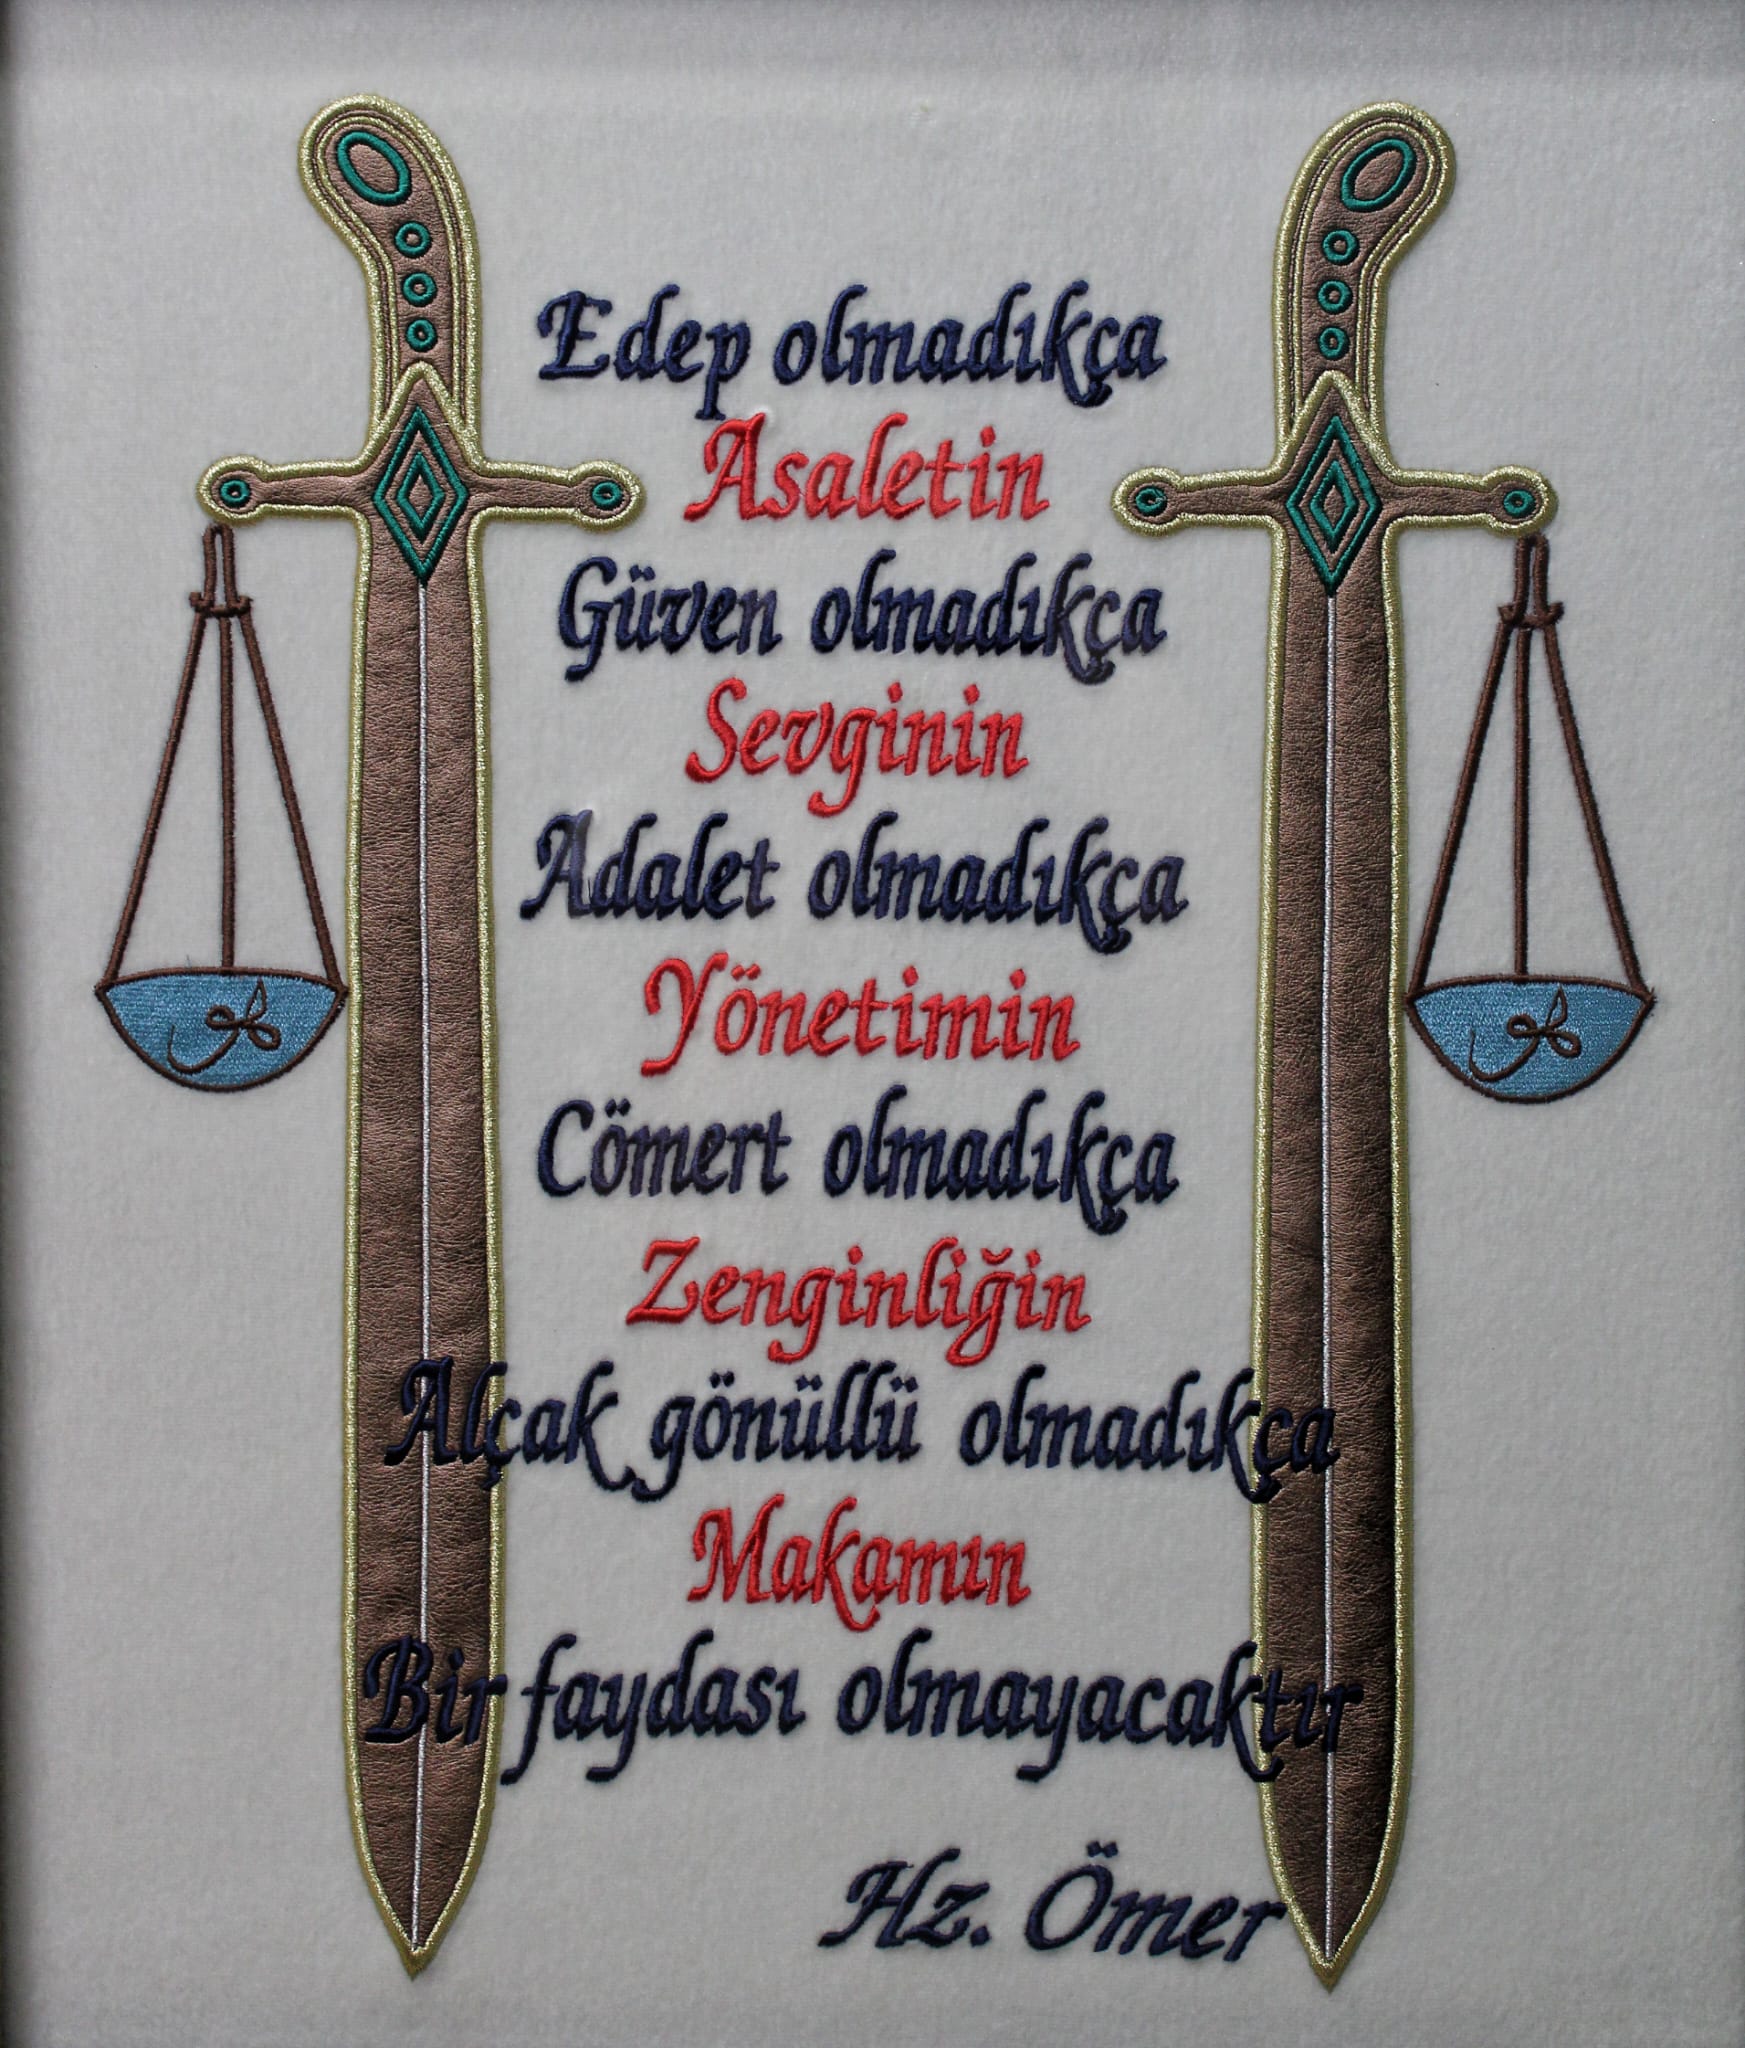 Edep olmadıkça
Asaletin
Güven olmadıkça
Sevginin
Adalet olmadıkça
Yönetimin
Cömert olmadıkça
Zenginliğin
Alçak gönüllü olmadıkça
Makamın
Bir faydası olmayacaktır
Hz. Ömer